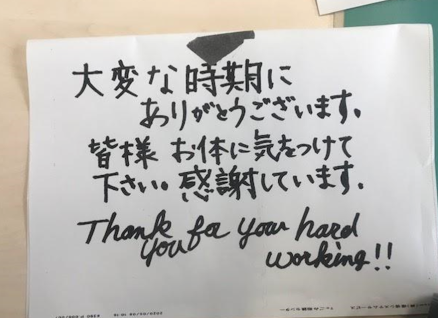 大変な時期に
ありがとうございます。
皆様 お体に気をつけて
下さい。感謝しています。
Thank you for your hard
working!!